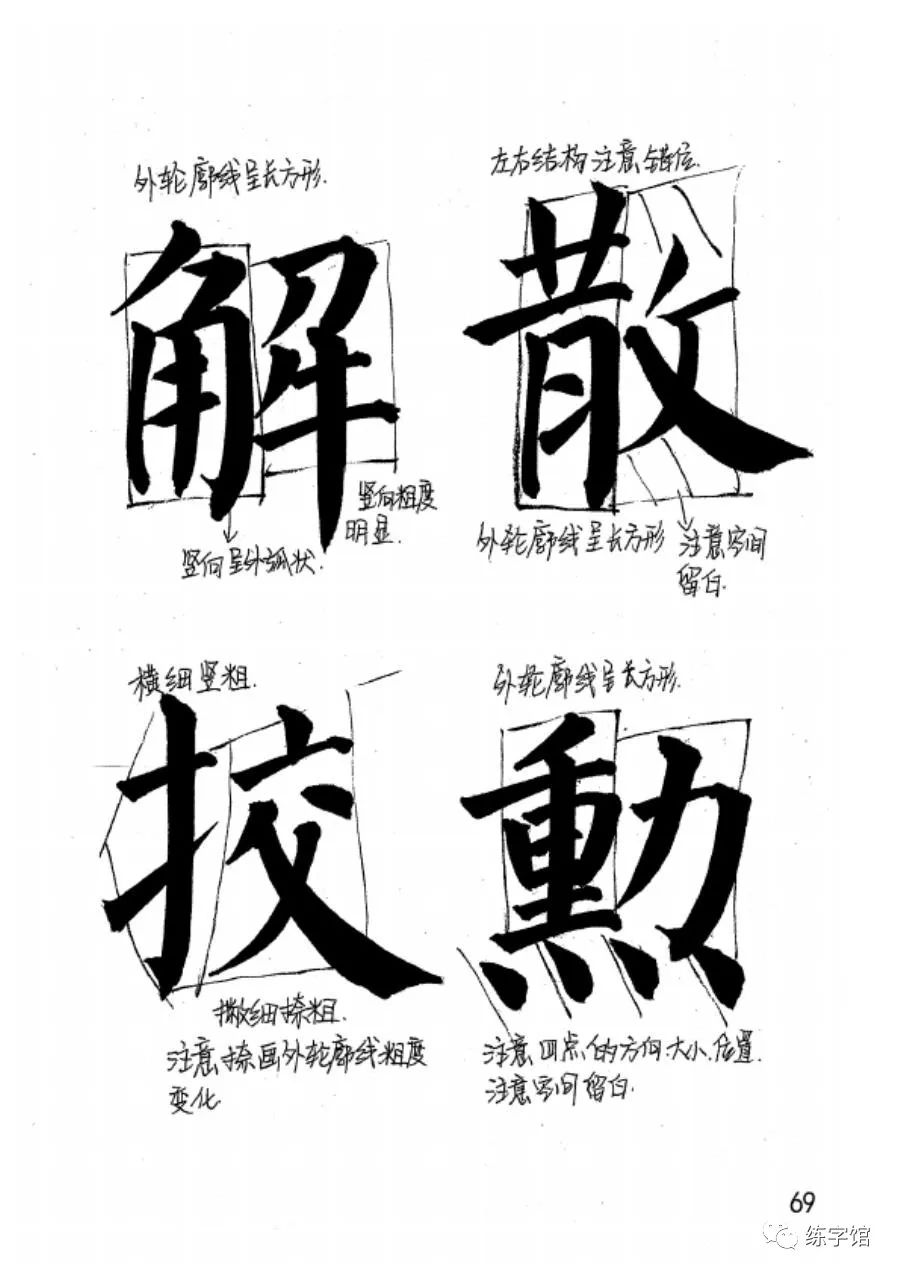 外轮廓线呈长方形.
左右结构注意错位.
解
散
竖向粗度
明显.
竖向呈外弧状.
外轮廓线呈长方形
注意空间
留白.
横细竖粗.
外轮廓线呈长方形.
挍
勳
撇细捺粗.
注意捺画外轮廓线粗度
变化
注意四点的方向.大小.位置.
注意空间留白.
69
练字馆